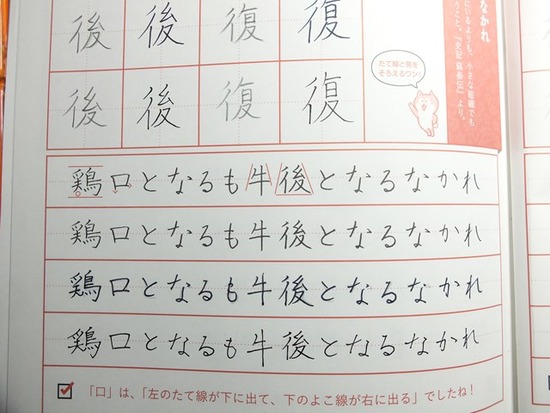 なかれ
にいるよりも、小さな組織でも
うこと。『史記 蘇秦伝』より。
たて線と
そろえるワン!
後 後 復 復
後 後 復 復
鶏口となるも牛後となるなかれ
鶏口となるも牛後となるなかれ
鶏口となるも牛後となるなかれ
鶏口となるも牛後となるなかれ
「口」は、「左のたて線が下に出て、下のよこ線が右に出る」でしたね!